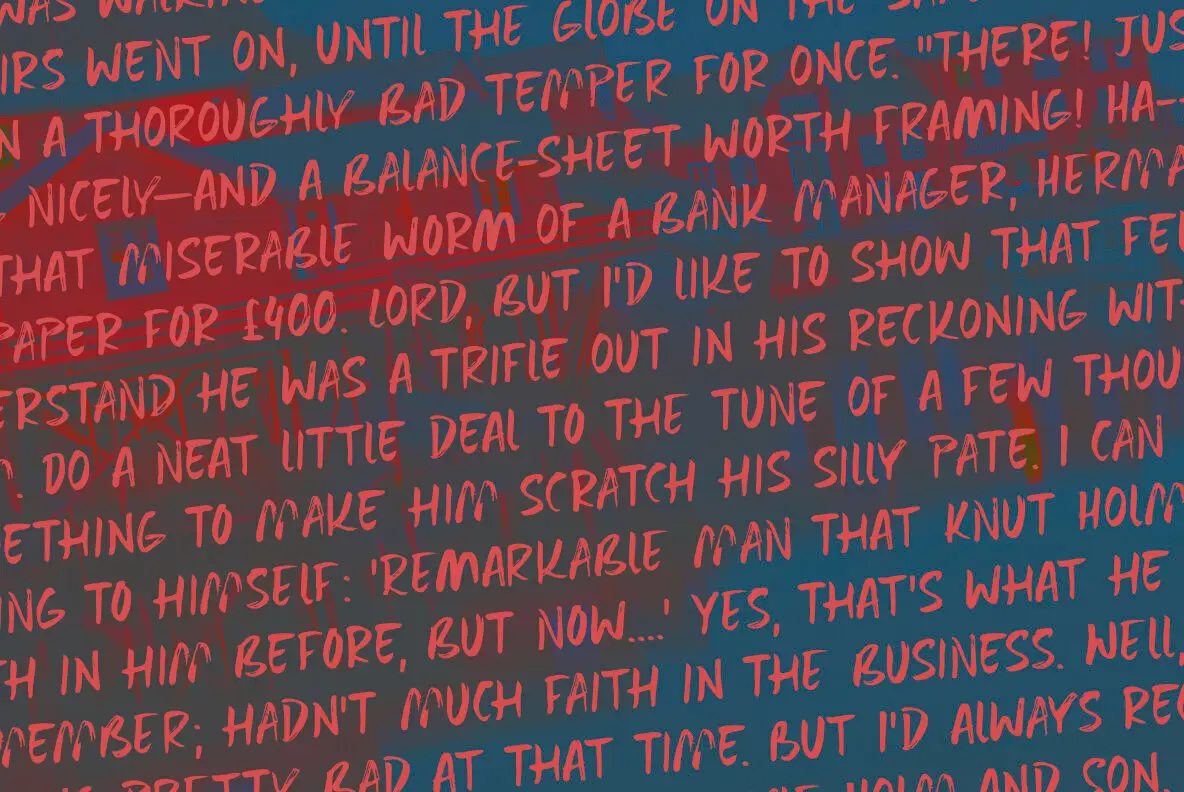 WAS WALKING
IRS WENT ON, UNTIL THE GLOBE ON THE
N A THOROUGHLY BAD TEMPER FOR ONCE. "THERE! JUS
NICELY—AND A BALANCE-SHEET WORTH FRAMING! HA--
THAT MISERABLE WORM OF A BANK MANAGER, HERMA
PAPER FOR £400. LORD, BUT I'D LIKE TO SHOW THAT FEL
ERSTAND HE WAS A TRIFLE OUT IN HIS RECKONING WIT
. DO A NEAT LITTLE DEAL TO THE TUNE OF A FEW THOU
ETHING TO MAKE HIM SCRATCH HIS SILLY PATE. I CAN
ING TO HIMSELF: 'REMARKABLE MAN THAT KNUT HOLM
TH IN HIM BEFORE, BUT NOW....' YES, THAT'S WHAT HE
MEMBER; HADN'T MUCH FAITH IN THE BUSINESS. WELL,
PRETTY BAD AT THAT TIME. BUT I'D ALWAYS REC
HOLM AND SON,